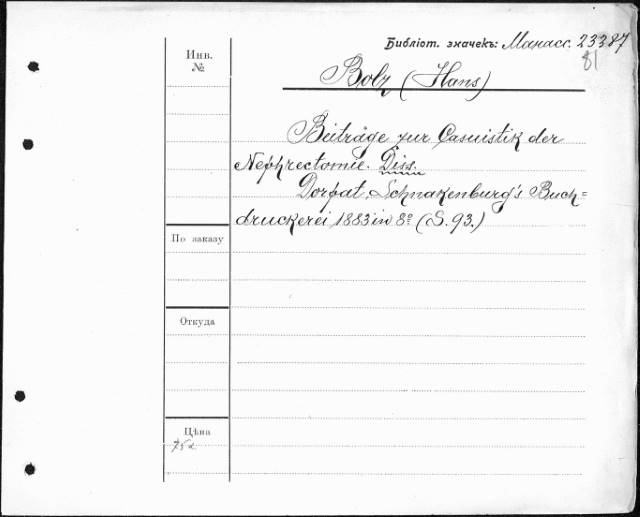 Библіот. значекъ: Манасс. 23387
81
Инв.
№
Bolz (Hans)
Beiträge zur Casuistik der
Nephrectomie. Diss.
Dorpat, Schnakenburg's Buch=
druckerei 1883 in 8º (S. 93.)
По заказу
Откуда
Цѣна